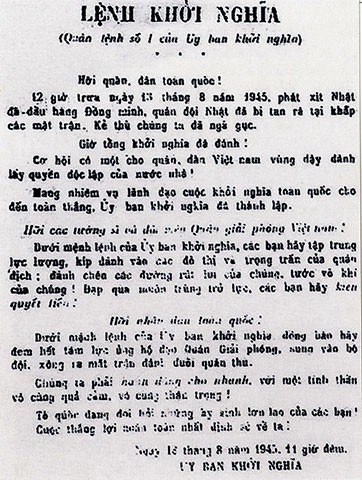 LỆNH KHỞI NGHĨA
(Quân lệnh số 1 của Ủy ban khởi nghĩa)
Hỡi quân, dân toàn quốc!
12 giờ trưa ngày 13 tháng 8 năm 1945, phát xít Nhật
đã đầu hàng Đồng minh, quân đội Nhật đã bị tan rã tại khắp
các mặt trận. Kẻ thù chúng ta đã ngã gục.
Giờ tổng khởi nghĩa đã đánh!
Cơ hội có một cho quân, dân Việt nam vùng dậy đánh
lấy quyền độc lập của nước nhà!
Mang nhiệm vụ lãnh đạo cuộc khởi nghĩa toàn quốc cho
đến toàn thắng, Ủy ban khởi nghĩa đã thành lập.
Hỡi các tướng sĩ và đội viên Quân giải phóng Việt nam!
Dưới mệnh lệnh của Ủy ban khởi nghĩa, các bạn hãy tập trung
lực lượng, kíp đánh vào các đô thị và trọng trấn của quân
địch; đánh chẹn các đường rút lui của chúng, tước võ khí
của chúng! Đạp qua muôn trùng trở lực, các bạn hãy kiên
quyết tiến!
Hỡi nhân dân toàn quốc!
Dưới mệnh lệnh của Ủy ban khởi nghĩa, đồng bào hãy
đem hết tâm lực ủng hộ đạo Quân Giải phóng, sung vào bộ
đội, xông ra mặt trận đánh đuổi quân thù.
Chúng ta phải hành động cho nhanh, với một tinh thần
vô cùng quả cảm, vô cùng thận trọng!
Tổ quốc đang đòi hỏi những hy sinh lớn lao của các bạn!
Cuộc thắng lợi hoàn toàn nhất định sẽ về ta!
Ngày 13 tháng 8 năm 1945, 11 giờ đêm.
ỦY BAN KHỞI NGHĨA